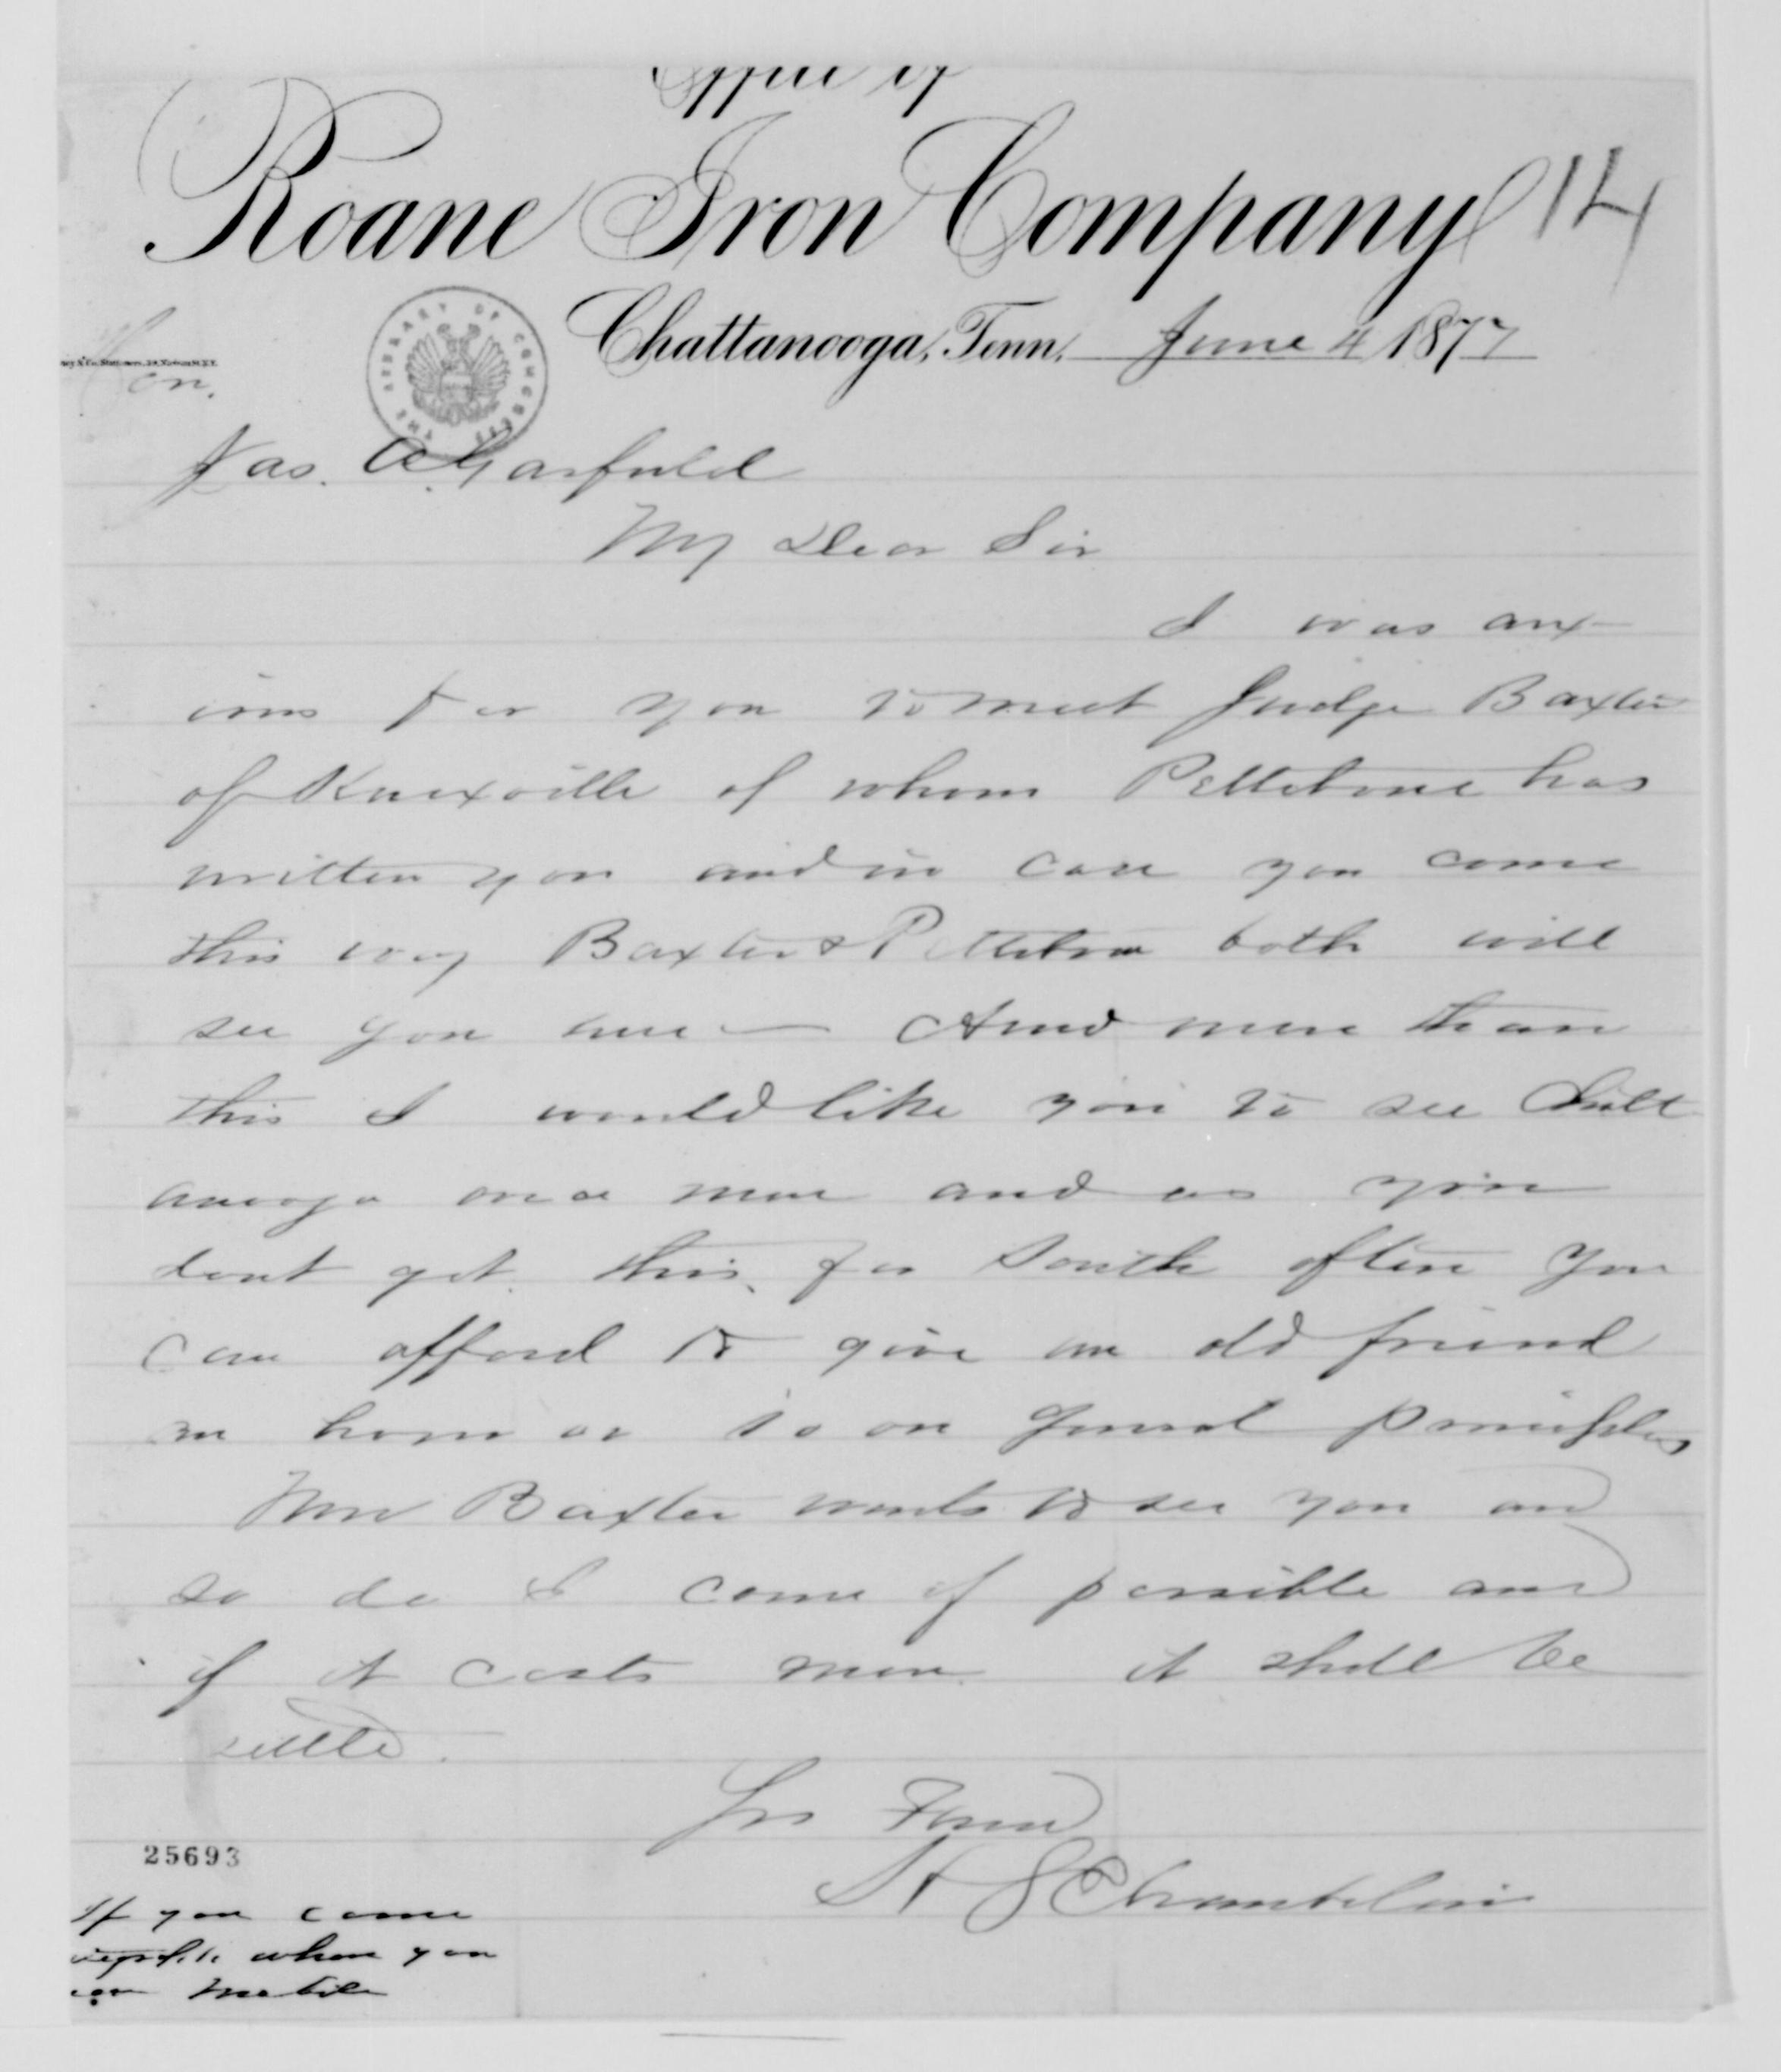 Office of
Roane Iron Company 14
Chattanooga, Tenn. June 4 1877
Hon.
THE LIBRARY OF CONGRESS
Jas. A. Garfield
My Dear Sir
I was anx-
ious for you to meet Judge Baxter
of Knoxville of whom Pettibone has
written you and in case you come
this way Baxter & Pettibone both will
see you here — And more than
this I would like you to see Chatt
anooga once more and as you
dont get this far South often you
can afford to give an old friend
an hour or so on general principles
Now Baxter wants to see you and
so do I come if possible and
if it costs more it shall be
settled.
Yrs
H S Chamberlain
25693
If you come
when you
Mobile